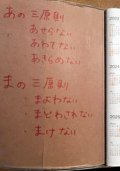 あの三原則
・あせらない
・あわてない
・あきらめない
まの三原則
・まよわない
・まどわされない
・まけない